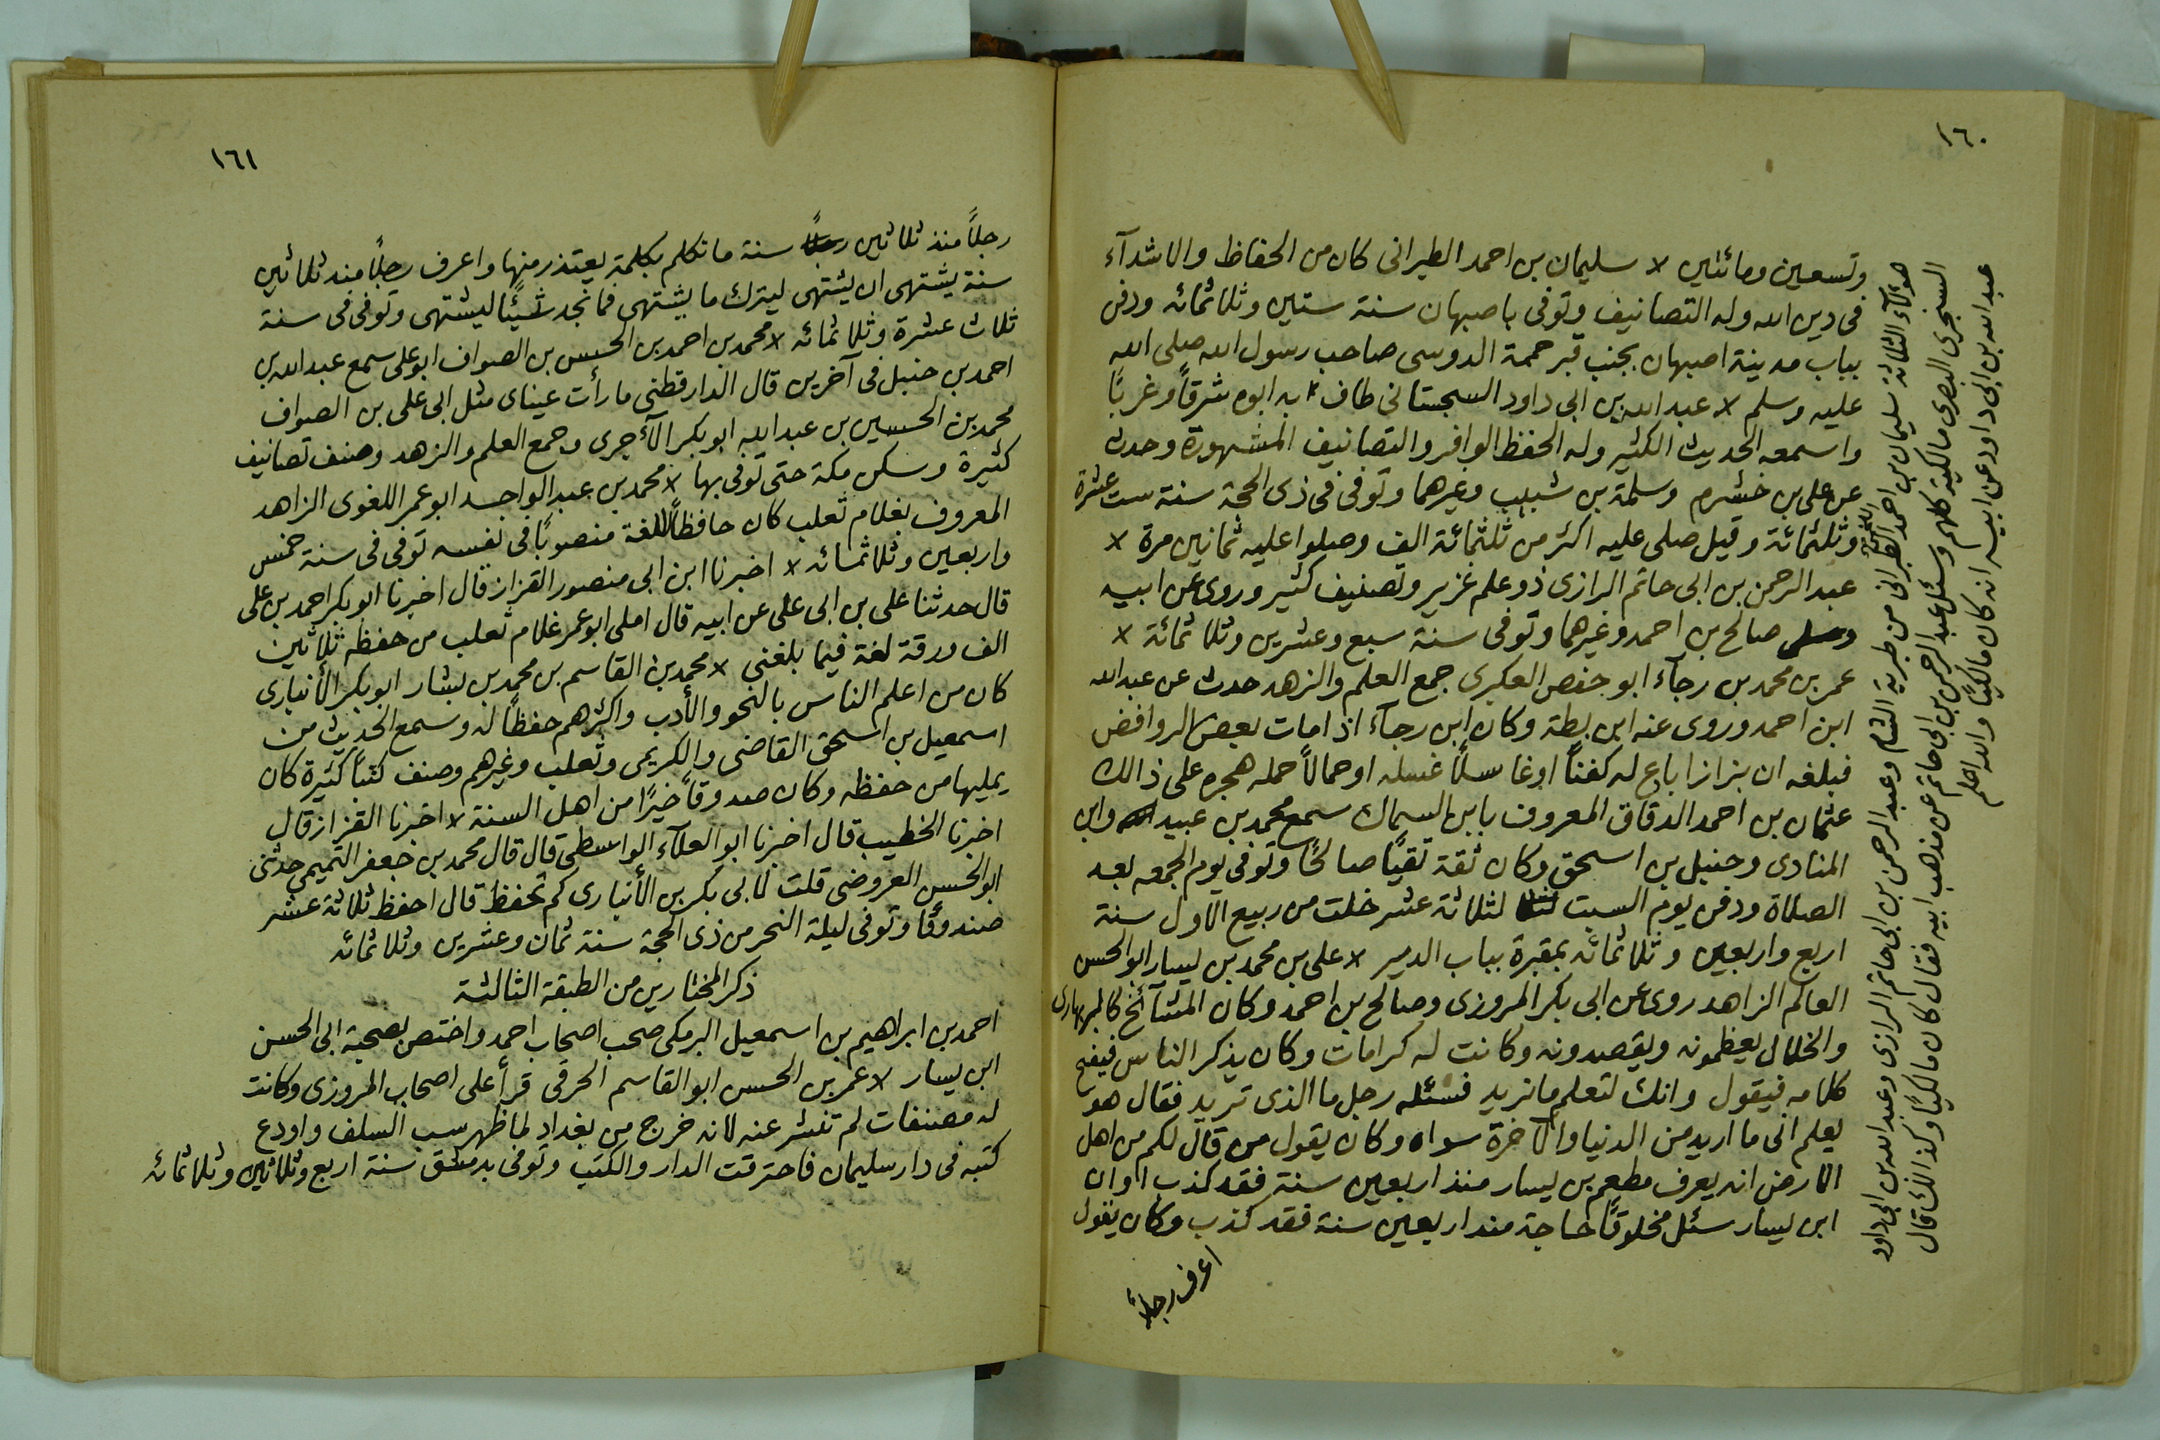 ١٦٠
وتسعين ومائتين × سليمان بن احمد الطبرانى كان من الحفاظ والاشدآء
فى دين الله وله التصانيف وتوفى باصبهان سنة ستين وثلاثمائه ودفن
بباب مدينة اصبهان بجنب قبر حممة الدوسى صاحب رسول الله صلى الله
عليه وسلم × عبدالله بن ابى داود السجستانى طاف به ابوه شرقاً وغرباً
واسمعه الحديث الكثير وله الحفظ الوافر والتصانيف المشهورة وحدث
عن على بن خشرم وسلمة بن شبيب وغيرهما وتوفى فى ذى الحجة سنة ست عشرة
وثلثمائة وقيل صلى عليه اكثر من ثلثمائة الف وصلوا عليه ثمانين مرة ×
عبد الرحمن بن ابى حاتم الرازى ذو علم غزير وتصنيف كثير وروى عن ابيه
صالح بن احمد وغيرهما وتوفى سنة سبع وعشرين وثلاثمائة ×
عمر بن محمد بن رجآء ابو حفص العكبرى جمع العلم والزهد حدث عن عبدالله
ابن احمد وروى عنه ابن بطة وكان ابن رجآء اذا مات بعض الروافض
فبلغه ان بزازا باع له كفناً اوغاسلاً غسله اوحمالاً حمله هجره على ذالك
عثمان بن احمد الدقاق المعروف بابن السماك سمع محمد بن عبيد الله وابن
المنادى وحنبل بن اسحق وكان ثقة تقيًا صالحًا وتوفى يوم الجمعه بعد
الصلاة ودفن يوم السبت لثلاثة عشر خلت من ربيع الاول سنة
اربع واربعين وثلاثمائه بمقبرة بباب الدير × على بن محمد بن يسار ابو الحسن
العالم الزاهد روى عن ابى بكر المروزى وصالح بن احمد وكان المشآئخ كالبربهارى
والخلال يعظمونه ويقصدونه وكانت له كرامات وكان يذكر الناس فيفتح
كلامه فيقول وانك لتعلم ما نريد فسئله رجل ما الذى تريد فقال هو
يعلم انى ما اريد من الدنيا والآخرة سواه وكان يقول من قال لكم من اهل
الارض انه يعرف مطعم بن يسار منذ اربعين سنة فقد كذب او ان
ابن يسار سئل مخلوقًا حاجة منذ اربعين سنة فقد كذب وكان يقول
اعرف رجلاً
هؤلآء الثلاثة سليمان بن احمد الطبرانى من طبرية الشام وعبد الرحمن بن ابى حاتم الرازى وعبدالله بن ابى داود
السجزى البصرى مالكية كلهم وسئل عبد الرحمن بن ابى حاتم عن مذهب ابيه فقال كان مالكيًا وكذالك قال
عبدالله بن ابى داود عن ابيه انه كان مالكيًا والله اعلم
١٦١
رجلاً منذ ثلاثين سنة ما تكلم بكلمة يعتذر منها واعرف رجلاً منذ ثلاثين
سنة يشتهى ان يشتهى ليترك ما يشتهى فما نجد شيئًا ليشتهى وتوفى فى سنة
ثلاث عشرة وثلاثمائه × محمد بن احمد بن الحسن بن الصواف ابو على سمع عبدالله بن
احمد بن حنبل فى آخرين قال الدارقطنى ما رأت عيناى مثل ابى على بن الصواف
محمد بن الحسين بن عبدالله ابو بكر الآجرى وجمع العلم والزهد وصنف تصانيف
كثيرة وسكن مكة حتى توفى بها × محمد بن عبد الواحد ابو عمر اللغوى الزاهد
المعروف بغلام ثعلب كان حافظاً للغة منصوبًا فى نفسه توفى فى سنة خمس
واربعين وثلاثمائه × اخبرنا ابن ابى منصور القزاز قال اخبرنا ابو بكر احمد بن على
قال حدثنا على بن ابى على عن ابيه قال املى ابو عمر غلام ثعلب من حفظه ثلاثين
الف ورقة لغة فيما بلغنى × محمد بن القاسم بن محمد بن بشار ابو بكر الأنبارى
كان من اعلم الناس بالنحو والأدب واكثرهم حفظاً له وسمع الحديث من
اسمعيل بن اسحق القاضى والكريمى وثعلب وغيرهم وصنف كتباً كثيرة كان
يمليها من حفظه وكان صدوقاً خيرًا من اهل السنة × اخبرنا القزاز قال
اخبرنا الخطيب قال اخبرنا ابو العلآء الواسطى قال قال محمد بن جعفر التميمي حدثنى
ابو الحسن العروضى قلت لابى بكر بن الأنبارى كم تحفظ قال احفظ ثلاثة عشر
صندوقًا وتوفى ليلة النحر من ذى الحجة سنة ثمان وعشرين وثلاثمائه
ذكر المختارين من الطبقة الثالثة
احمد بن ابراهيم بن اسمعيل البرمكى صحب اصحاب احمد واختص بصحبة ابى الحسن
ابن يسار × عمر بن الحسن ابو القاسم الخرقى قرأ على اصحاب المروزى وكانت
له مصنفات لم تنشر عنه لانه خرج من بغداد لما ظهر سب السلف واودع
كتبه فى دار سليمان فاحترقت الدار والكتب وتوفى بدمشق سنة اربع وثلاثين وثلاثمائه